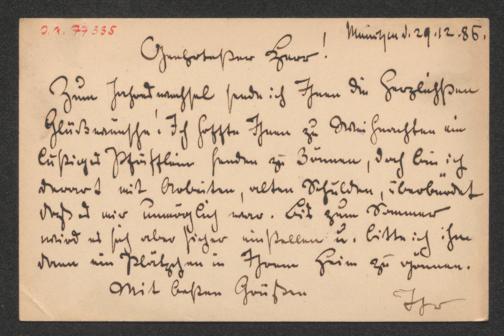 J. N. 77335
München d. 29.12.86.
Geehrtester Herr!
Zum Jahreswechsel sende ich Ihnen die herzlichsten
Glückwünsche! Ich hoffte Ihnen zu Weihnachten ein
lustiges senden zu können, doch bin ich
derart mit Arbeiten, alten Schulden, überbürdet
daß es mir unmöglich war. Bis zum Sommer
wird es sich aber sicher einstellen u. bitte ich ihm
dann ein Plätzchen in Ihrem Heim zu gönnen.
Mit besten Grüßen
Ihr